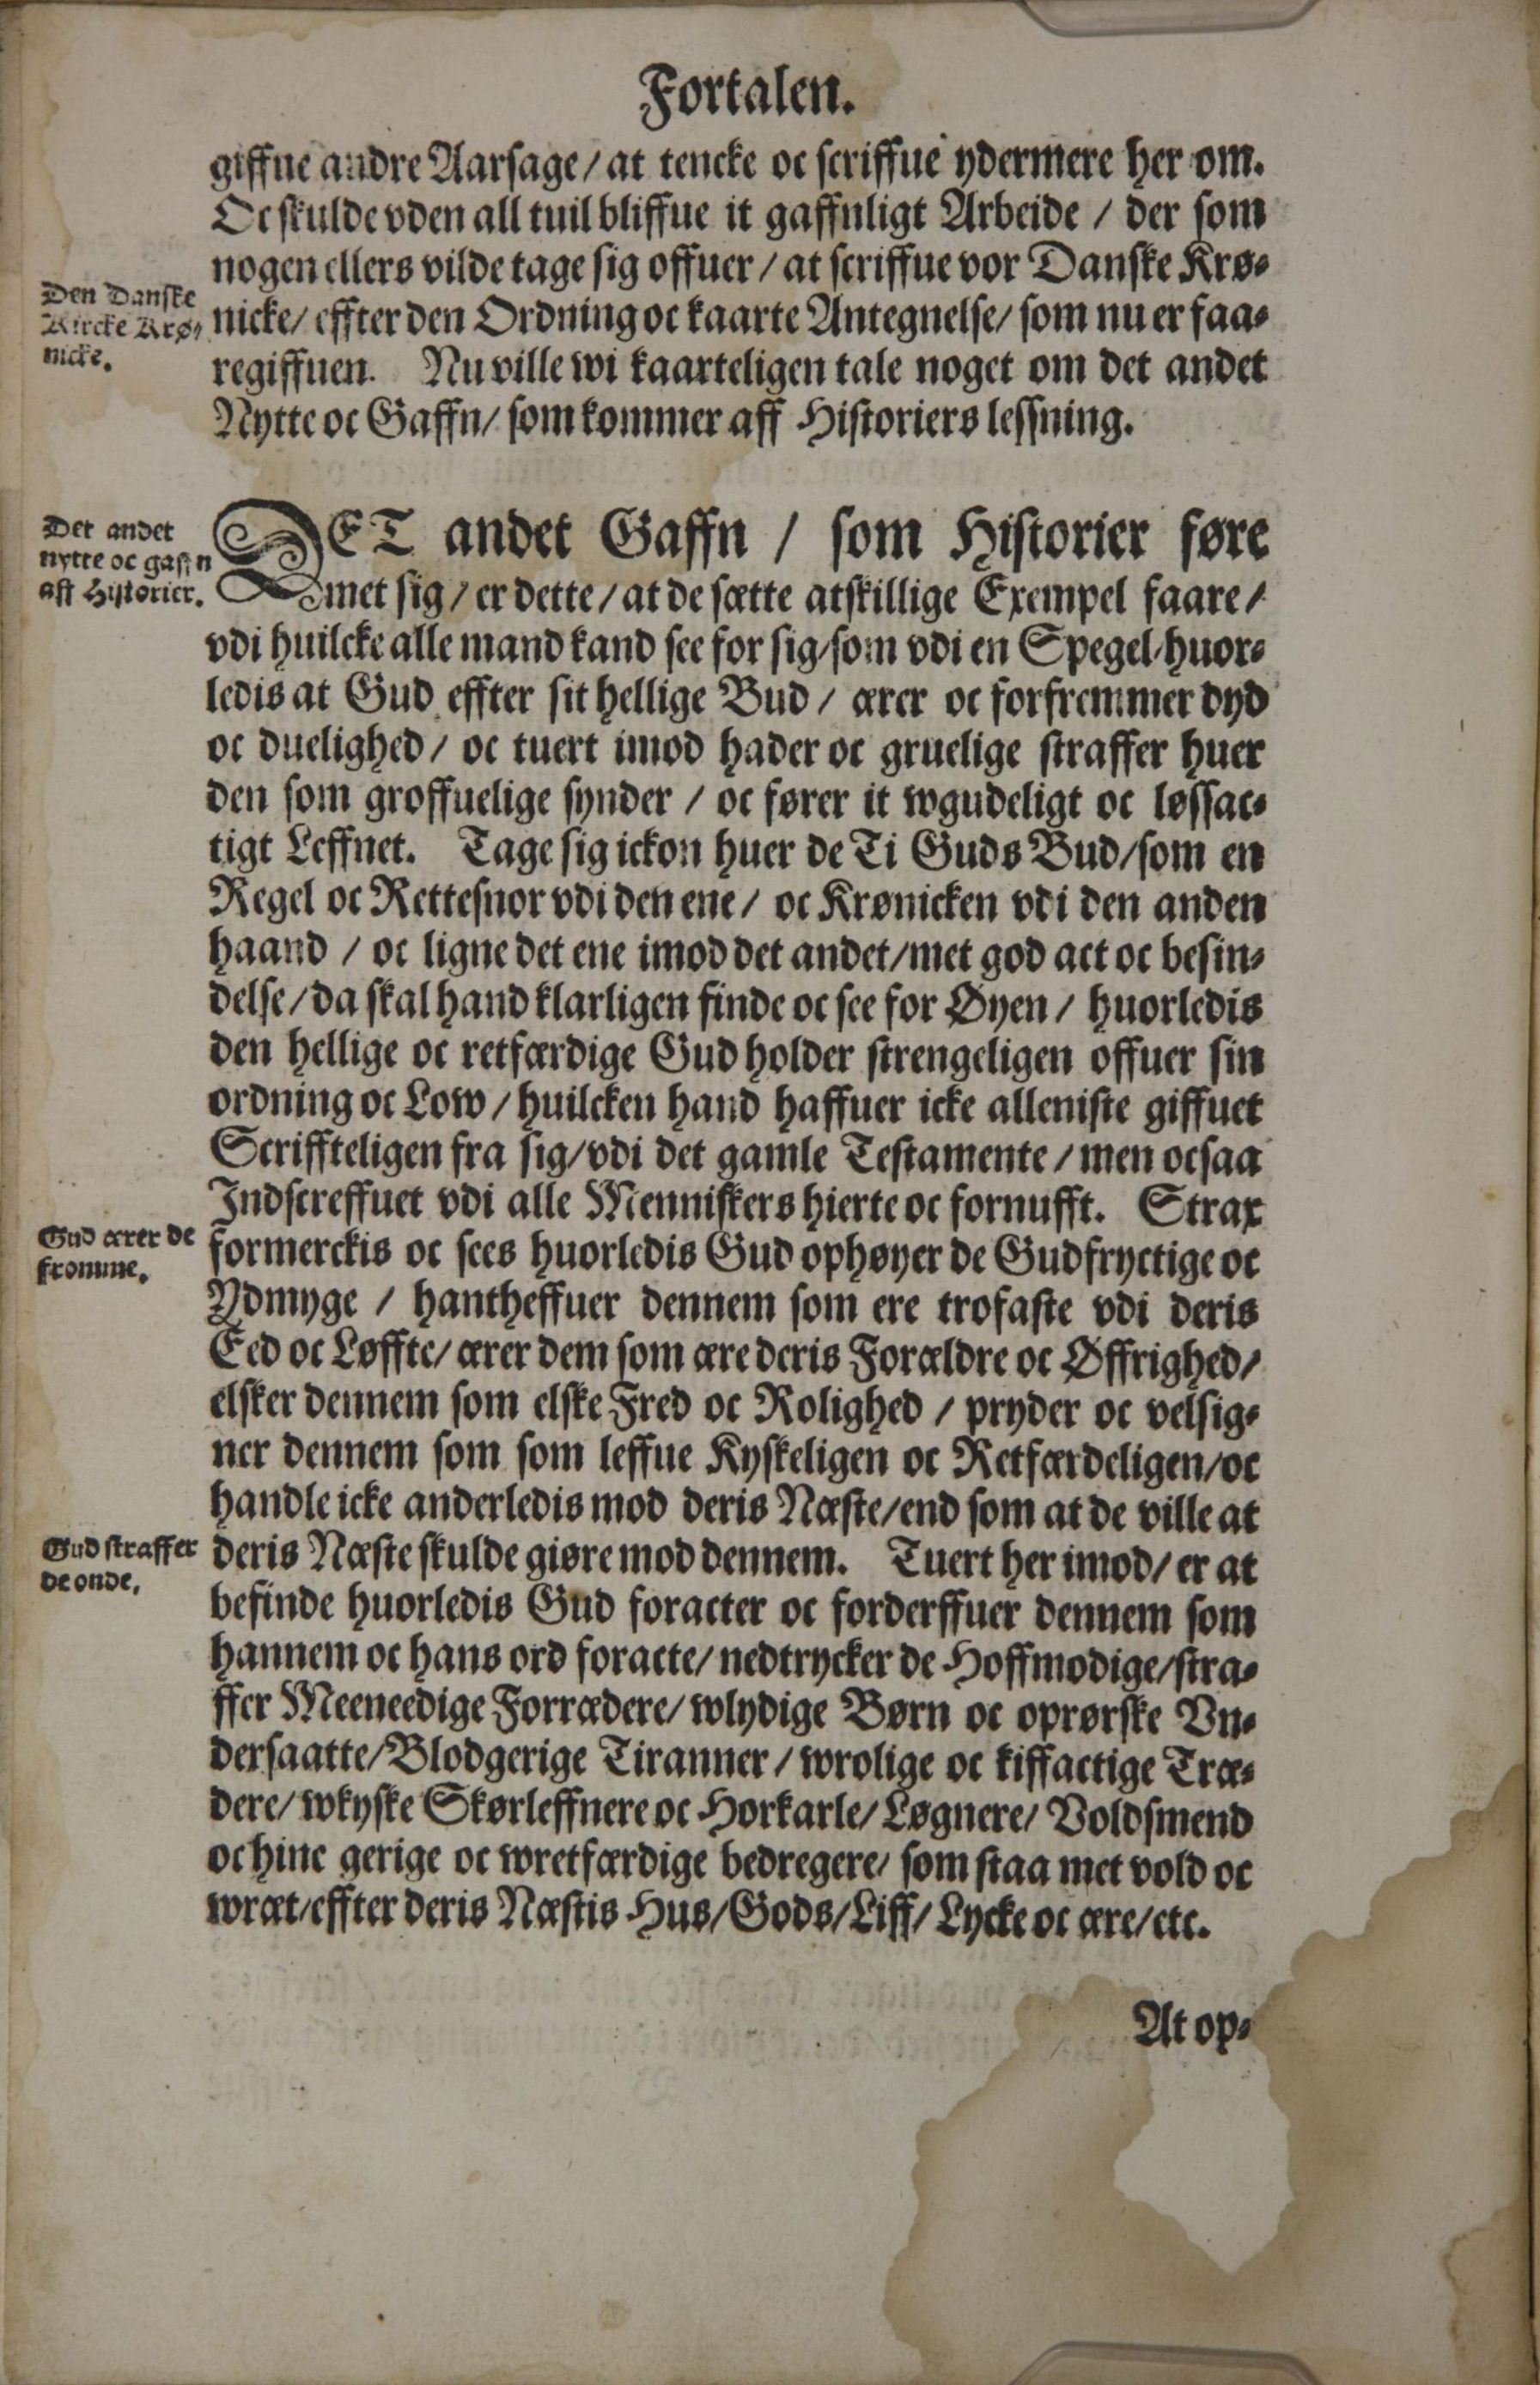 Fortalen.
giffue andre Aarsage/ at tencke oc scriffue ydermere her om.
Oc skulde vden all tuil bliffue it gaffnligt Arbeide / der som
nogen ellers vilde tage sig offuer / at scriffue vor Danske Krø-
Den Danske
Kircke Krø-
nicke.
nicke/ effter den Ordning oc kaarte Antegnelse/ som nu er faa-
regiffuen. Nu ville wi kaarteligen tale noget om det andet
Nytte oc Gaffn/ som kommer aff Historiers lessning.
Det andet
nytte oc gaffn
aff Historier.
DET andet Gaffn / som Historier føre
met sig / er dette / at de sætte atskillige Exempel faare /
vdi huilcke alle mand kand see for sig/som vdi en Spegel/huor-
ledis at Gud effter sit hellige Bud / ærer oc forfremmer dyd
oc duelighed / oc tuert imod hader oc gruelige straffer huer
den som groffuelige synder / oc fører it wgudeligt oc løssac-
tigt Leffnet. Tage sig ickon huer de Ti Guds Bud/som en
Regel oc Rettesnor vdi den ene / oc Krønicken vdi den anden
haand / oc ligne det ene imod det andet/met god act oc besin-
delse/da skal hand klarligen finde oc see for Øyen / huorledis
den hellige oc retfærdige Gud holder strengeligen offuer sin
ordning oc Low / huilcken hand haffuer icke alleniste giffuet
Scriffteligen fra sig/vdi det gamle Testamente / men ocsaa
Indscreffuet vdi alle Menniskers hierte oc fornufft. Strax
Gud ærer de
fromme.
formerckis oc sees huorledis Gud ophøyer de Gudfryctige oc
Ydmyge / hantheffuer dennem som ere trofaste vdi deris
Eed oc Løffte/ ærer dem som ære deris Forældre oc Øffrighed/
elsker dennem som elske Fred oc Rolighed / pryder oc velsig-
ner dennem som som leffue Kyskeligen oc Retfærdeligen/oc
handle icke anderledis mod deris Næste/end som at de ville at
Gud straffer
de onde.
deris Næste skulde giøre mod dennem. Tuert her imod/ er at
befinde huorledis Gud foracter oc forderffuer dennem som
hannem oc hans ord foracte/ nedtrycker de Hoffmodige/stra-
ffer Meeneedige Forrædere/ wlydige Børn oc oprørske Vn-
dersaatte/Blodgerige Tiranner / wrolige oc kiffactige Træ-
dere/ wkyske Skørleffnere oc Horkarle/ Løgnere/ Voldsmend
oc hine gerige oc wretfærdige bedregere/ som staa met vold oc
wræt/effter deris Næstis Hus/Gods/Liff/ Lycke oc ære/etc.
At op-